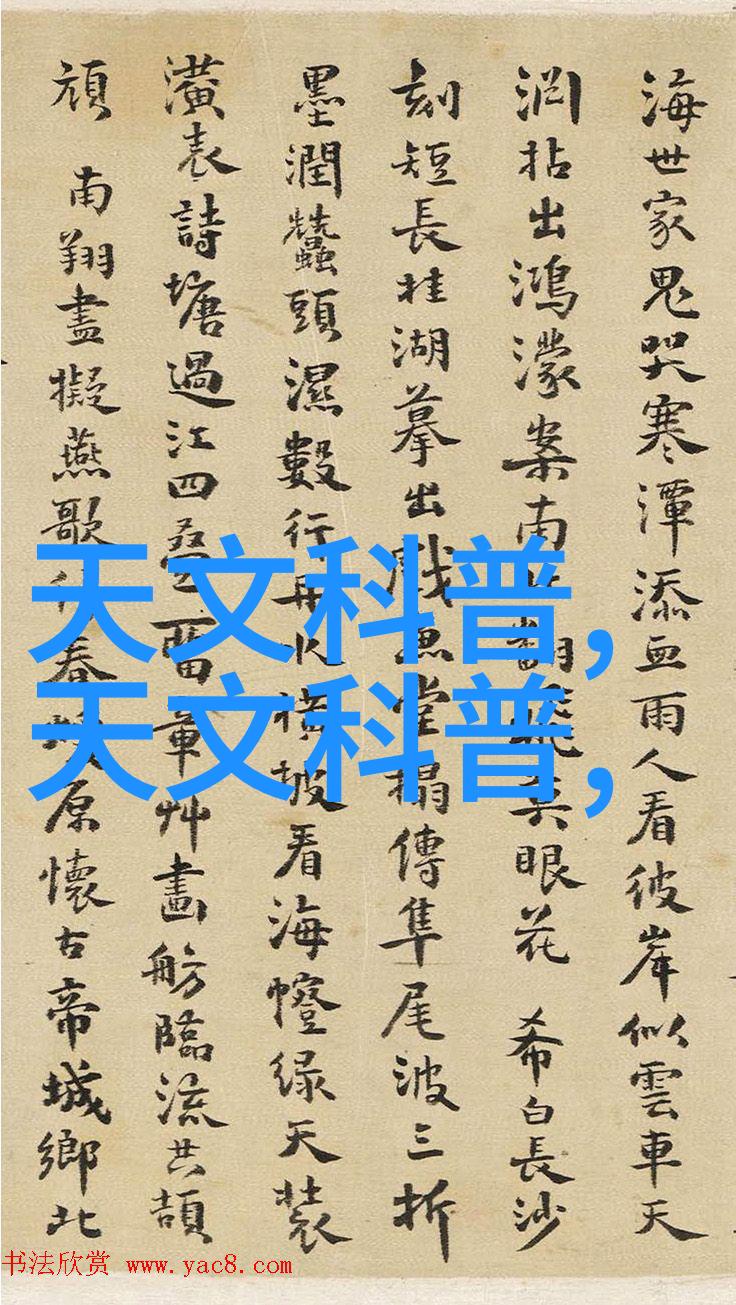 海世家鬼哭寒潭添血雨人看彼岸似雲車天
拈出鴻濛案南眼花 希白長沙
刻短長桂湖摹出戲堂搨傳隼尾波三折
墨潤蠶頭濕數行水橫披看海幢绿天裝
潢表詩塘過江四疊章艸畫舫臨流共頡
頏 南翔盡擬燕歌行春原懷古帝城鄉北
天文科普,
天文科普,
书法欣赏 www.yac8.com